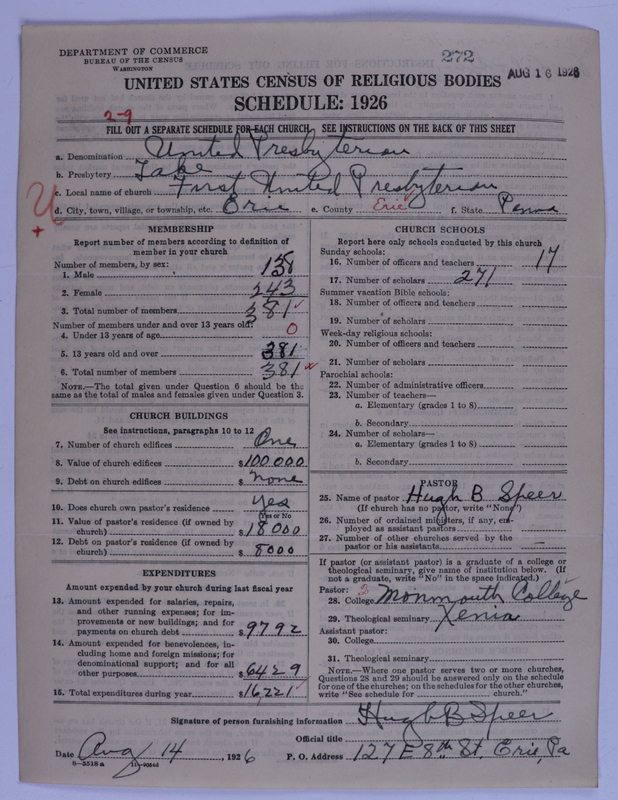 DEPARTMENT OF COMMERCE
BUREAU OF THE CENSUS
WASHINGTON
272
AUG 16 1926
UNITED STATES CENSUS OF RELIGIOUS BODIES
SCHEDULE: 1926
2-9
FILL OUT A SEPARATE SCHEDULE FOR EACH CHURCH. SEE INSTRUCTIONS ON THE BACK OF THIS SHEET
a. Denomination United Presbyterian
b. Presbytery Lake
c. Local name of church First United Presbyterian
d. City, town, village, or township, etc. Erie e. County Erie f. State Penna
MEMBERSHIP
Report number of members according to definition of
member in your church
Number of members, by sex:
1. Male 138
2. Female 243
3. Total number of members 381
Number of members under and over 13 years old:
4. Under 13 years of age 0
5. 13 years old and over 381
6. Total number of members 381
NOTE.—The total given under Question 6 should be the
same as the total of males and females given under Question 3.
CHURCH BUILDINGS
See instructions, paragraphs 10 to 12
7. Number of church edifices One
8. Value of church edifices $100000
9. Debt on church edifices $ none
10. Does church own pastor's residence yes
(Yes or No)
11. Value of pastor's residence (if owned by
church) $18000
12. Debt on pastor's residence (if owned by
church) $ 8000
EXPENDITURES
Amount expended by your church during last fiscal year
13. Amount expended for salaries, repairs,
and other running expenses; for im-
provements or new buildings; and for
payments on church debt $9792
14. Amount expended for benevolences, in-
cluding home and foreign missions; for
denominational support; and for all
other purposes $6429
15. Total expenditures during year $16,221
CHURCH SCHOOLS
Report here only schools conducted by this church
Sunday schools:
16. Number of officers and teachers 17
17. Number of scholars 271
Summer vacation Bible schools:
18. Number of officers and teachers
19. Number of scholars
Week-day religious schools:
20. Number of officers and teachers
21. Number of scholars
Parochial schools:
22. Number of administrative officers
23. Number of teachers—
a. Elementary (grades 1 to 8)
b. Secondary
24. Number of scholars—
a. Elementary (grades 1 to 8)
b. Secondary
PASTOR
25. Name of pastor Hugh B Speer
(If church has no pastor, write "None")
26. Number of ordained ministers, if any, em-
ployed as assistant pastors
27. Number of other churches served by the
pastor or his assistants —
If pastor (or assistant pastor) is a graduate of a college or
theological seminary, give name of institution below. (If
not a graduate, write "No" in the space indicated.)
Pastor:
28. College Monmouth College
29. Theological seminary Xenia
Assistant pastor:
30. College
31. Theological seminary
NOTE.—Where one pastor serves two or more churches,
Questions 28 and 29 should be answered only on the schedule
for one of the churches; on the schedules for the other churches,
write "See schedule for church."
Signature of person furnishing information Hugh B Speer
Official title
Date Aug 14, 1926 P. O. Address 127 E 8th St. Erie, Pa
8-5518a